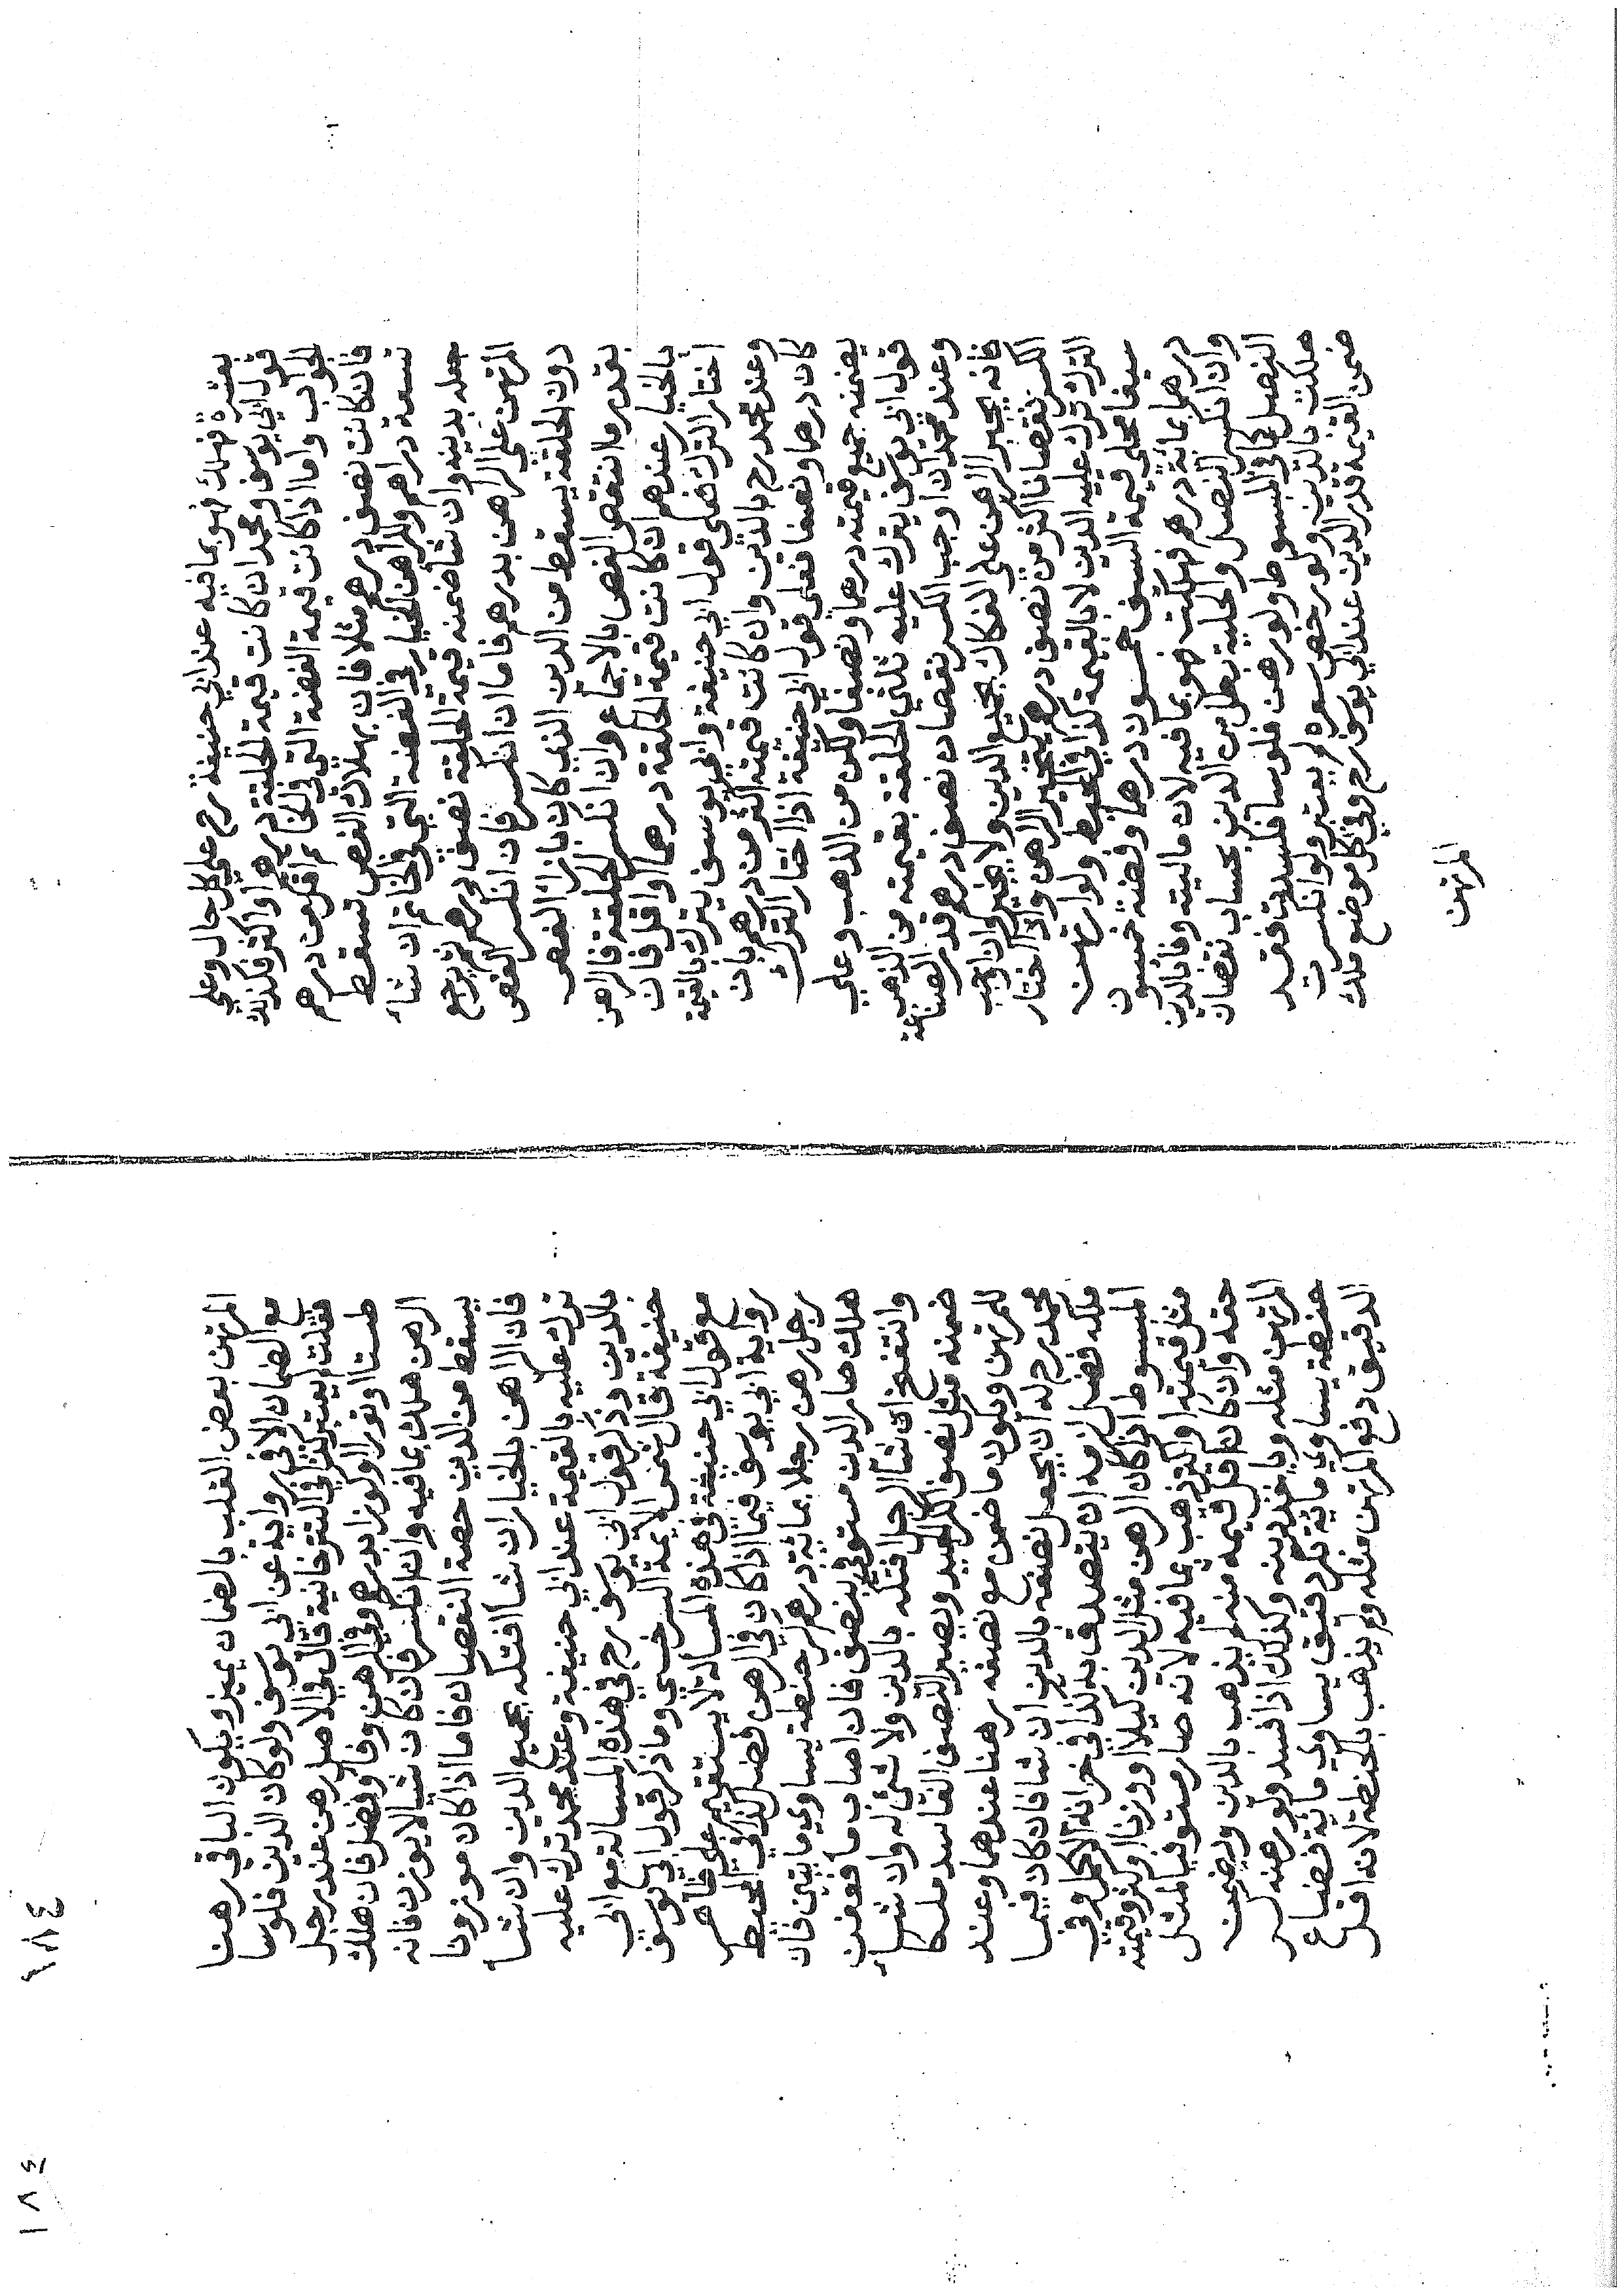 بعشرة فهلك فهو بما فيه عند ابي حنيفة رح على كل حال وعلى
قول ابي يوسف ومحمد ان كانت قيمة الحلقة درهم او اكثر فكذلك
الجواب واما اذا كانت قيمة الفضة التي في الخاتم اقل من درهم
فان كانت نصف درهم مثلا فان بهلاك الفص تسقط
تسعة دراهم وللراهن الخيار في الفضة التي في الخاتم ان شاء
جعله بدينه وان شا ضمنه قيمة الحلقة نصف درهم ثم يرجع
المرتهن على الراهن بدرهم فاما ان انكسر فان انكسر الفص
دون الحلقة يسقط من الدين الذي كان بازاء الفص
بقدر ما انتقص الفص بالاجماع وان انكسر الحلقة فالراهن
بالخيار عندهم ان كانت قيمة الحلقة درهما او اقل فان
اختار الترك فعلى قول ابي حنيفة وابي يوسف يترك بالقيمة
وعند محمد رح بالدين وان كانت قيمته اكثر من درهم بان
كان درهما ونصفا فعلى قول ابي حنيفة اذا اختار الترك
يضمنه جميع قيمته درهما ونصفا ولكن من الذهب وعلى
قول ابي يوسف يترك عليه ثلثي الحلقة بقيمته من الذهب
وعند محمد ان اوجب الكسر نقصان نصف درهم قدر الصياغة
فانه يجبر الراهن على الفكاك بجميع الدين ولا يخير وان اوجب
الكسر نقصانا اكثر من نصف درهم يتخير الراهن واذا اختار
الترك ترك عليه الدين لا بالقيمة كذا في المحيط ولو ارتهن
سيفا محلى قيمة السيف خمسون درهما وفضته خمسون
درهما بمائة درهم فهلكت فهو بما فيه لان ماليته وفا بالدين
وان انكسر النصل والحلية بطل من الدين بحساب نقصان
النصل كما في المبسوط ولو رهن فلوسا فكسدت فقد
هلكت بالدين ولو رخص سعره لم يعتبر ولو انكسرت
ضمن القيمة قدر الدين عند ابي يوسف رح وفي كل موضع ملك
المرتهن
١٨٤
١٨٤
المرتهن بعض القلب بالضمان يميز ويكون الباقي رهنا
مع الضمان الا في رواية عن ابي يوسف ولو كان الدين فلوسا
فغلت لم يعتبر كذا في التترخانية قال في الاصل رهن عند رجل
طستا او تورا او كوزا بدرهم وفي الرهن وفا وفضل فان هلك
الرهن هلك بما فيه وان انكسر فان كان شيا لا يوزن فانه
يسقط من الدين حصة النقصان فاما اذا كان موزونا
فان الراهن بالخيار ان شا افتكه بجميع الدين وان شا
ترك عليه بالقيمة عند ابي حنيفة وعند محمد ترك عليه
بالدين وذكر قول ابي يوسف رح في هذه المسالة مع ابي
حنيفة قال شمس الايمة السرخسي وما ذكر قول ابي يوسف
مع قول ابي حنيفة في هذه المسالة لا يستقيم على ظاهر
رواية ابي يوسف فيما اذا كان في الرهن فضل كذا في المحيط
رجل رهن رجلا بمائة درهم كر حنطة يساوي مايتين فان
هلك صار الدين مستوفى بنصف فان اصاب ما فعفن
وانتفخ ان شا الرجل افتكه بالدين ولا شئ له وان شاء
ضمنه مثل نصف الكر الجيد ويصير النصف الفاسد ملكا
للمرتهن ويكون ما ضمن مع نصفه رهنا عندهما وعند
محمد رح له ان يجعل نصفه بالدين ان شا فان كان فيما
ملكه فضل لزمه ان يتصدق به كذا في خزانة الاكمل وفي
المبسوط اذا كان الرهن مثل الدين كيلا او وزنا او اكثر وقيمته
مثل قيمته او اكثر ذهب بما فيه لانه صار مستوفيا لمثل
حقه وان كان اقل قيمه منه لم يذهب بالدين ويضمن
المرتهن مثله وياخذ دينه وكذلك اذا فسد ولو رهنه كر
حنطة يساوي مائة بكر دقيق يساوي مائة فضاع
الدقيق دفع المرتهن مثله ولم يذهب بالحنطة لانه اقل